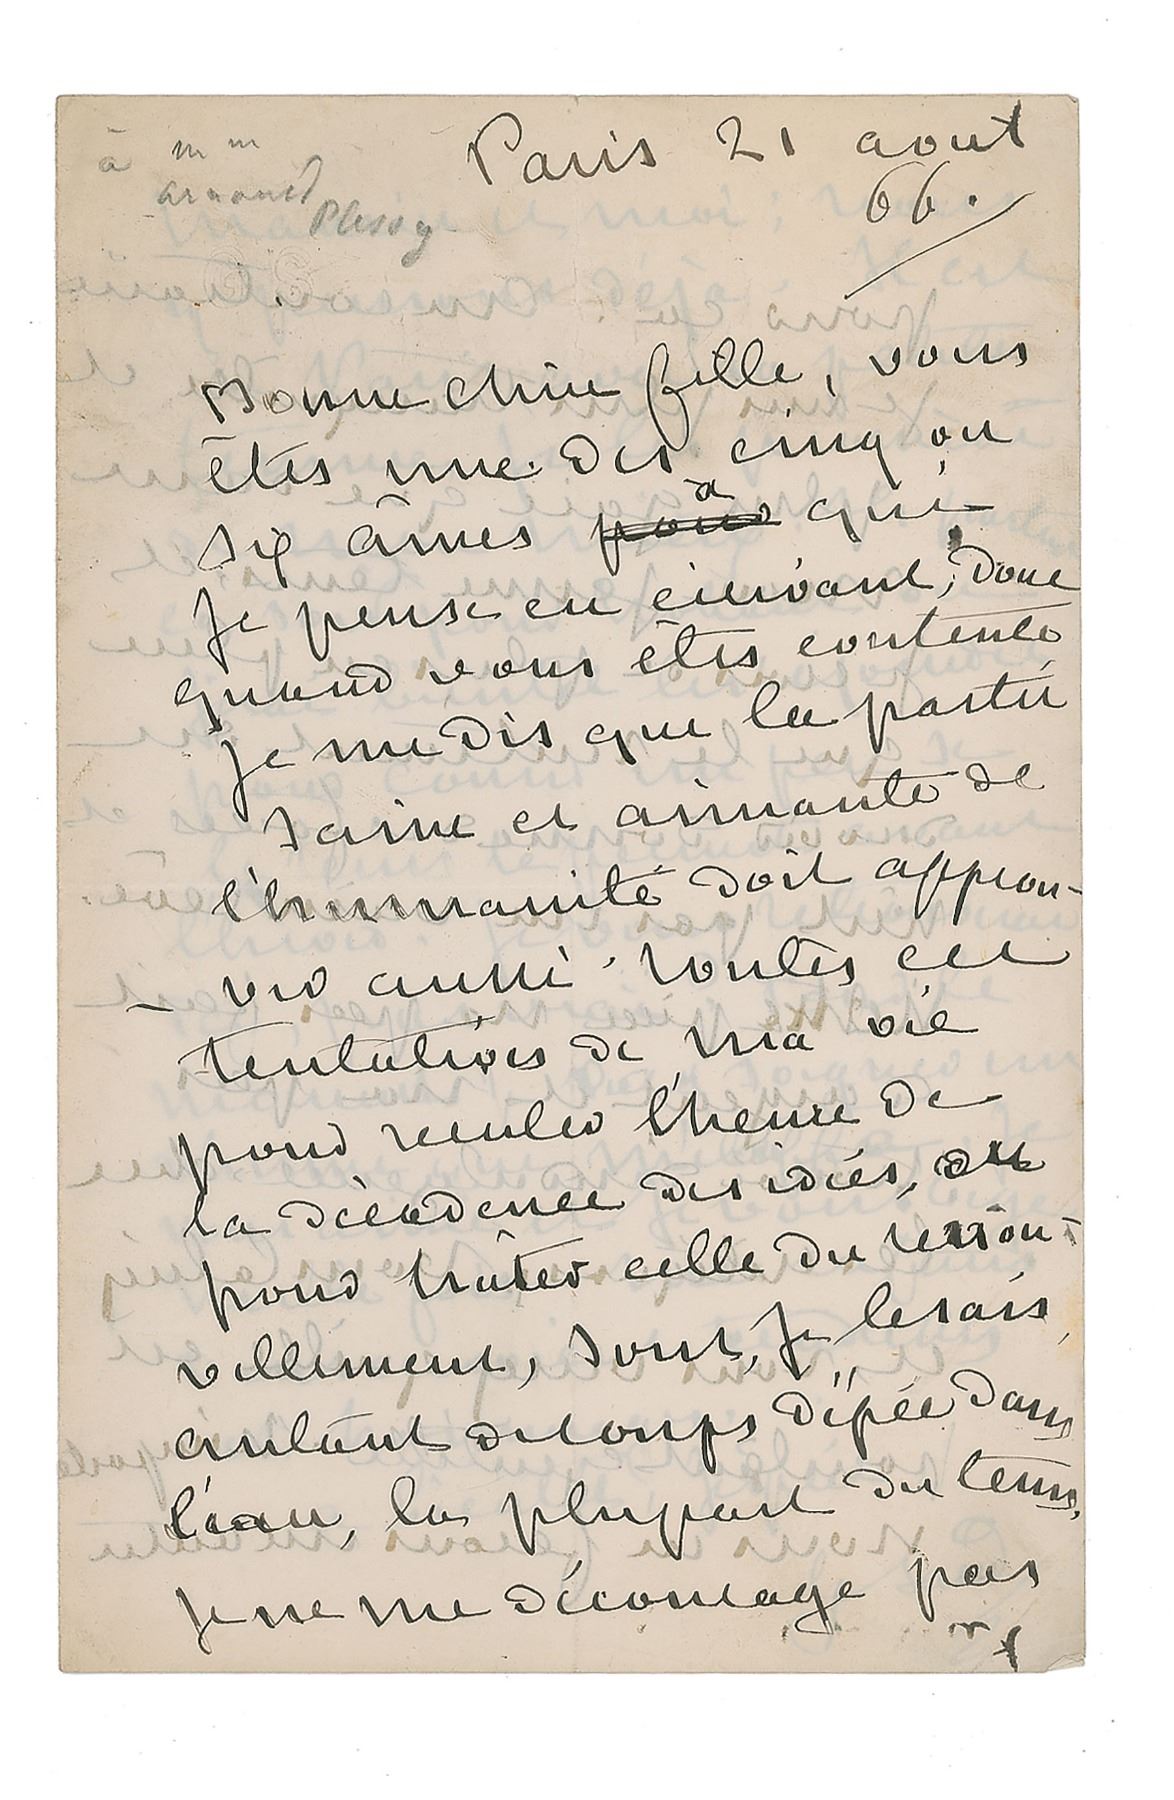 à Mme
Arnould
Plessy
Paris 21 aout
66.
Bonne chère fille, vous
êtes une des cinq ou
six âmes pour à qui
je pense en écrivant, donc
quand vous êtes contente
je me dis que la partie
saine et aimante de
l'humanité doit approu-
-ver aussi. toutes ces
tentatives de ma vie
pour reculer l'heure de
la décadence des idées, ou
pour hater celle du renou-
vellement, sont, je le sais,
autant de coups d'épée dans
l'eau, la plupart du tems.
Je ne me décourage pas